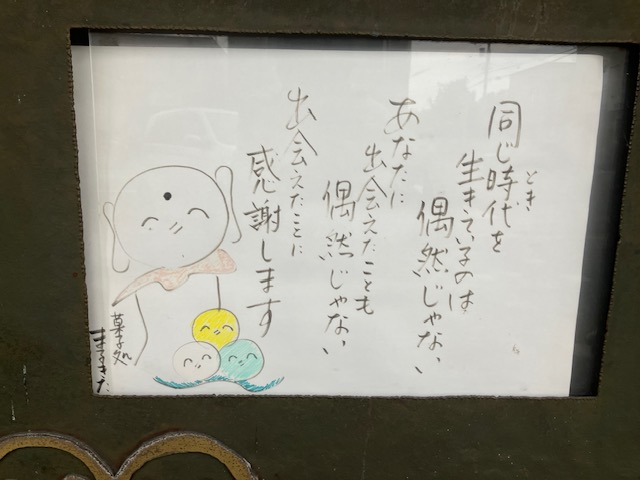 同じ時代を
とき
生きているのは
偶然じゃない
あなたに
出会えたことも
偶然じゃない
出会えたことに
感謝します
菓子処
まるきた